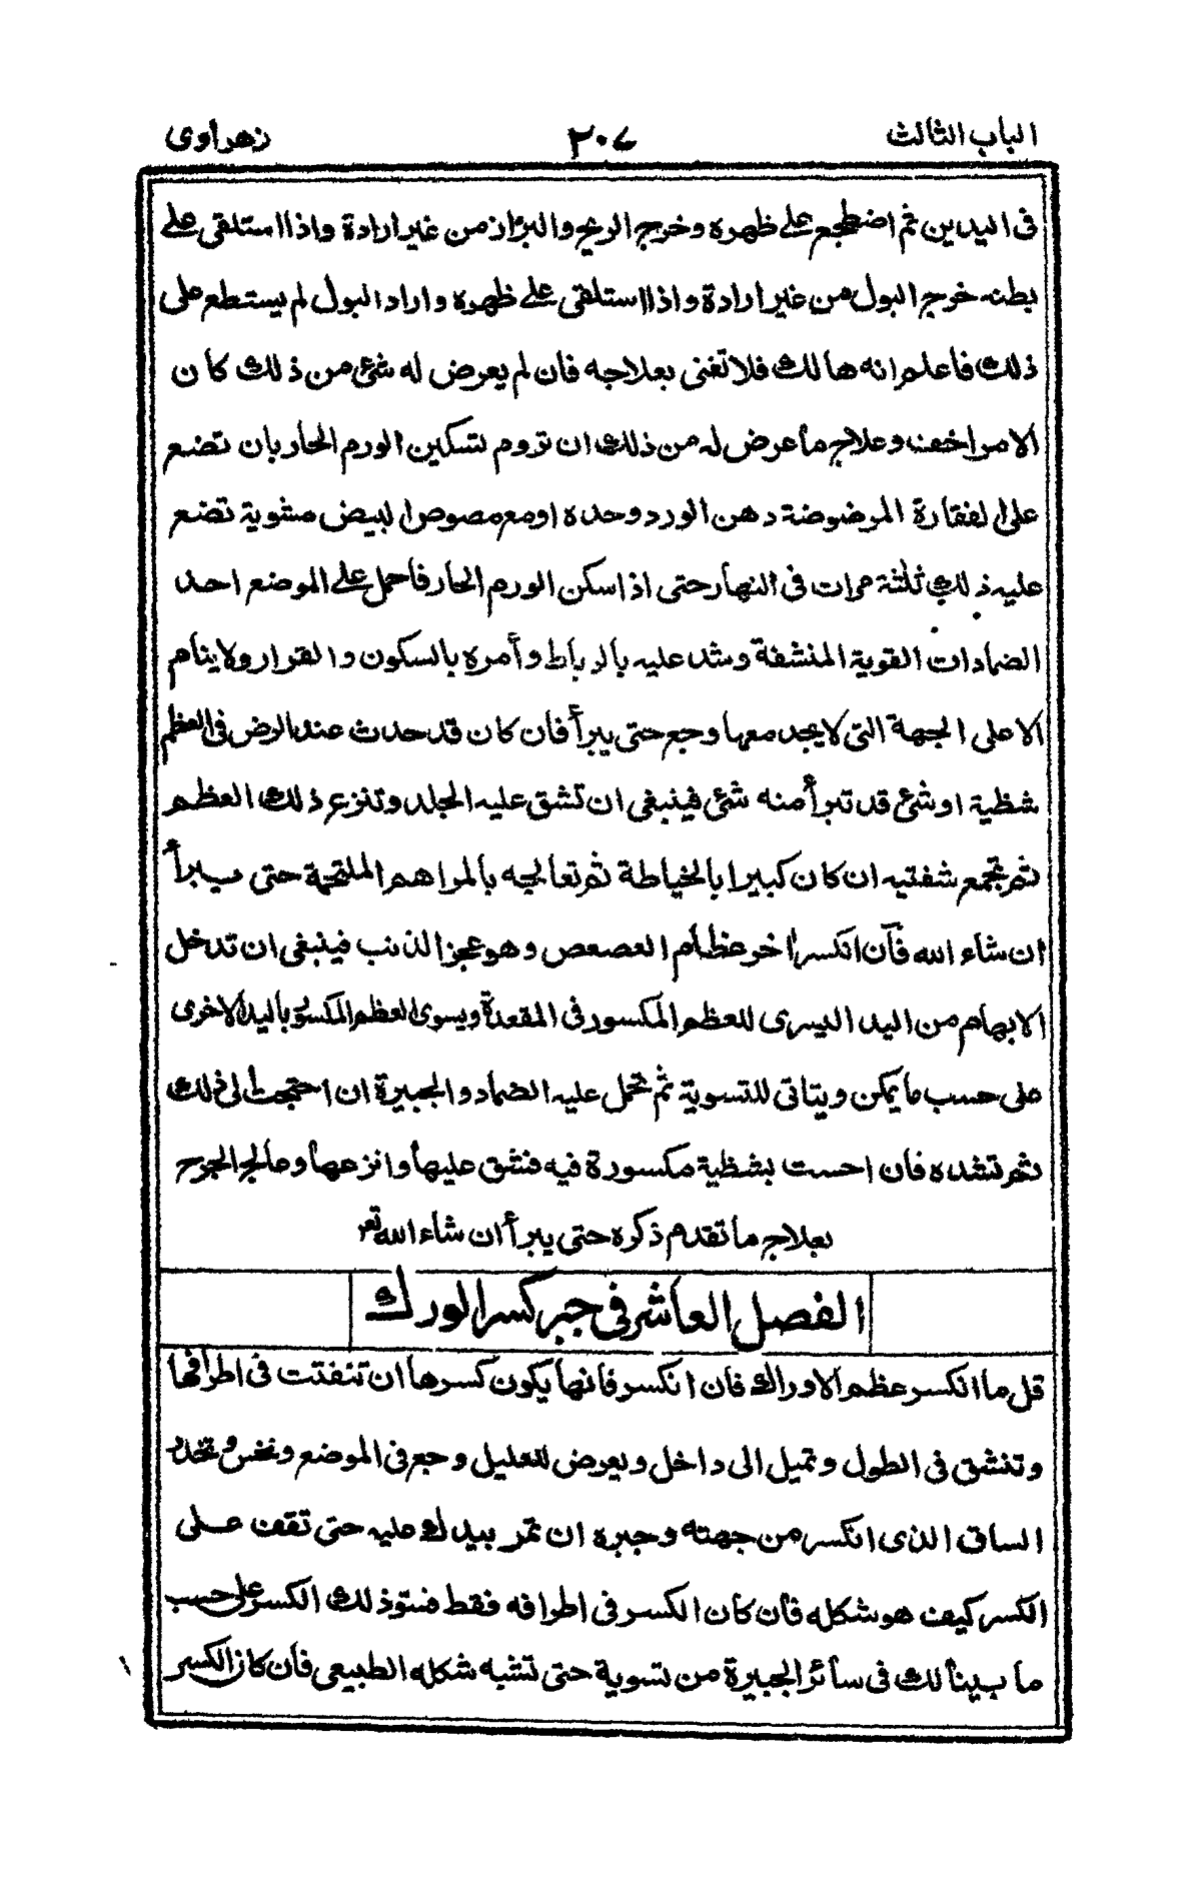 الباب الثالث ٢٠٧ زهراوى
فى اليدين ثم اضطجع على ظهره وخرج الريح والبراز من غير ارادة واذا استلقى على
بطنه خرج البول من غير ارادة واذا استلقى على ظهره واراد البول لم يستطع على
ذلك فاعلم انه هالك فلا تغنى بعلاجه فان لم يعرض له شئ من ذلك كان
الامر اخف وعلاج ما عرض له من ذلك ان تروم تسكين الورم الحار بان تضع
على الفقارة المرضوضة دهن الورد وحده او مع مصوص البيض مشوية تضع
عليه ذلك ثلثة مرات فى النهار حتى اذا سكن الورم الحار فاحمل على الموضع احد
الضمادات القوية المنشفة وشد عليه بالرباط وأمره بالسكون والقرار ولا ينام
الا على الجهة التى لا يجد معها وجع حتى يبرأ فان كان قد حدث عند الرض فى العظم
شظية او شئ قد تبرأ منه شئ فينبغى ان تشق عليه الجلد وتنزع ذلك العظم
ثم تجمع شفتيه ان كان كبيرا بالخياطة ثم تعالجه بالمراهم الملتحمة حتى يبرأ
ان شاء الله فان انكسر اخر عظام العصعص وهو عجز الذنب فينبغى ان تدخل
الابهام من اليد اليسرى للعظم المكسور فى المقعدة ويسوى العظم المكسور باليد الاخرى
على حسب ما يمكن ويتاتى للتسوية ثم تحمل عليه الضماد والجبيرة ان احتجت الى ذلك
ثم تشده فان احست بشظية مكسورة فيه فتشق عليها وانزعها وعالج الجرح
بعلاج ما تقدم ذكره حتى يبرأ ان شاء الله تع
الفصل العاشر فى جبر كسر الورك
قل ما انكسر عظم الاوراك فان انكسر فانها يكون كسرها ان تتفتت فى اطرافها
وتنشق فى الطول وتميل الى داخل ويعرض للعليل وجع فى الموضع ونخس وتخدر
الساق الذى انكسر من جهته وجبره ان تمر بيدك عليه حتى تقف على
الكسر كيف هو شكله فان كان الكسر فى اطرافه فقط فسو ذلك الكسر على حسب
ما بينا لك فى سائر الجبيرة من تسوية حتى تشبه شكله الطبيعى فان كان الكسر